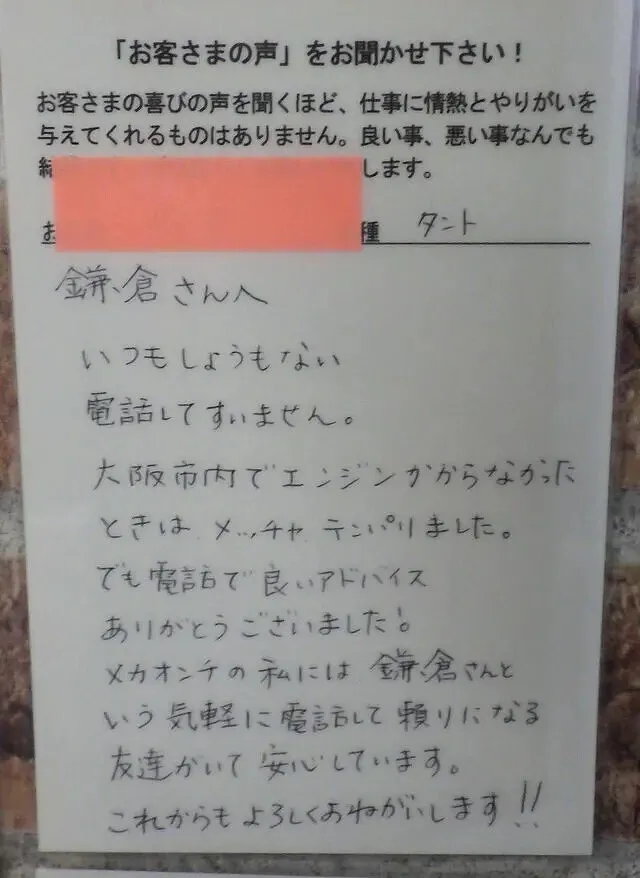 「お客さまの声」をお聞かせ下さい！
お客さまの喜びの声を聞くほど、仕事に情熱とやりがいを
与えてくれるものはありません。良い事、悪い事なんでも
します。
お 種 タント
鎌倉さんへ
いつもしょうもない
電話してすいません。
大阪市内でエンジンかからなかった
ときは メッチャ テンパりました。
でも電話で良いアドバイス
ありがとうございました！
メカオンチの私には 鎌倉さんと
いう気軽に電話して頼りになる
友達がいて安心しています。
これからもよろしくおねがいします!!